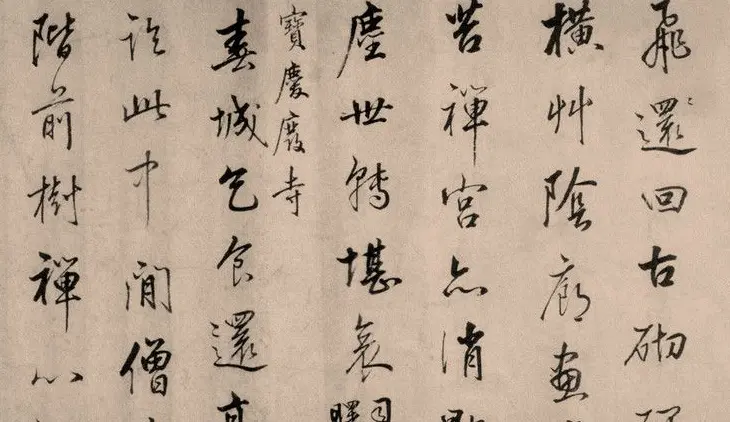 飛還回古砌
橫艸陰廊畫
苦禪宮亦消
塵世轉堪哀
寶慶廢寺
春城乞食還高
論此中閒僧
階前樹禪心